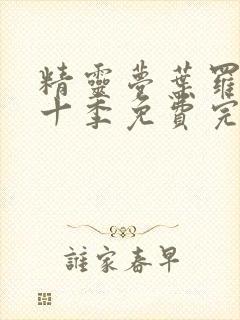 精靈夢葉羅
十季免費完
誰家春早